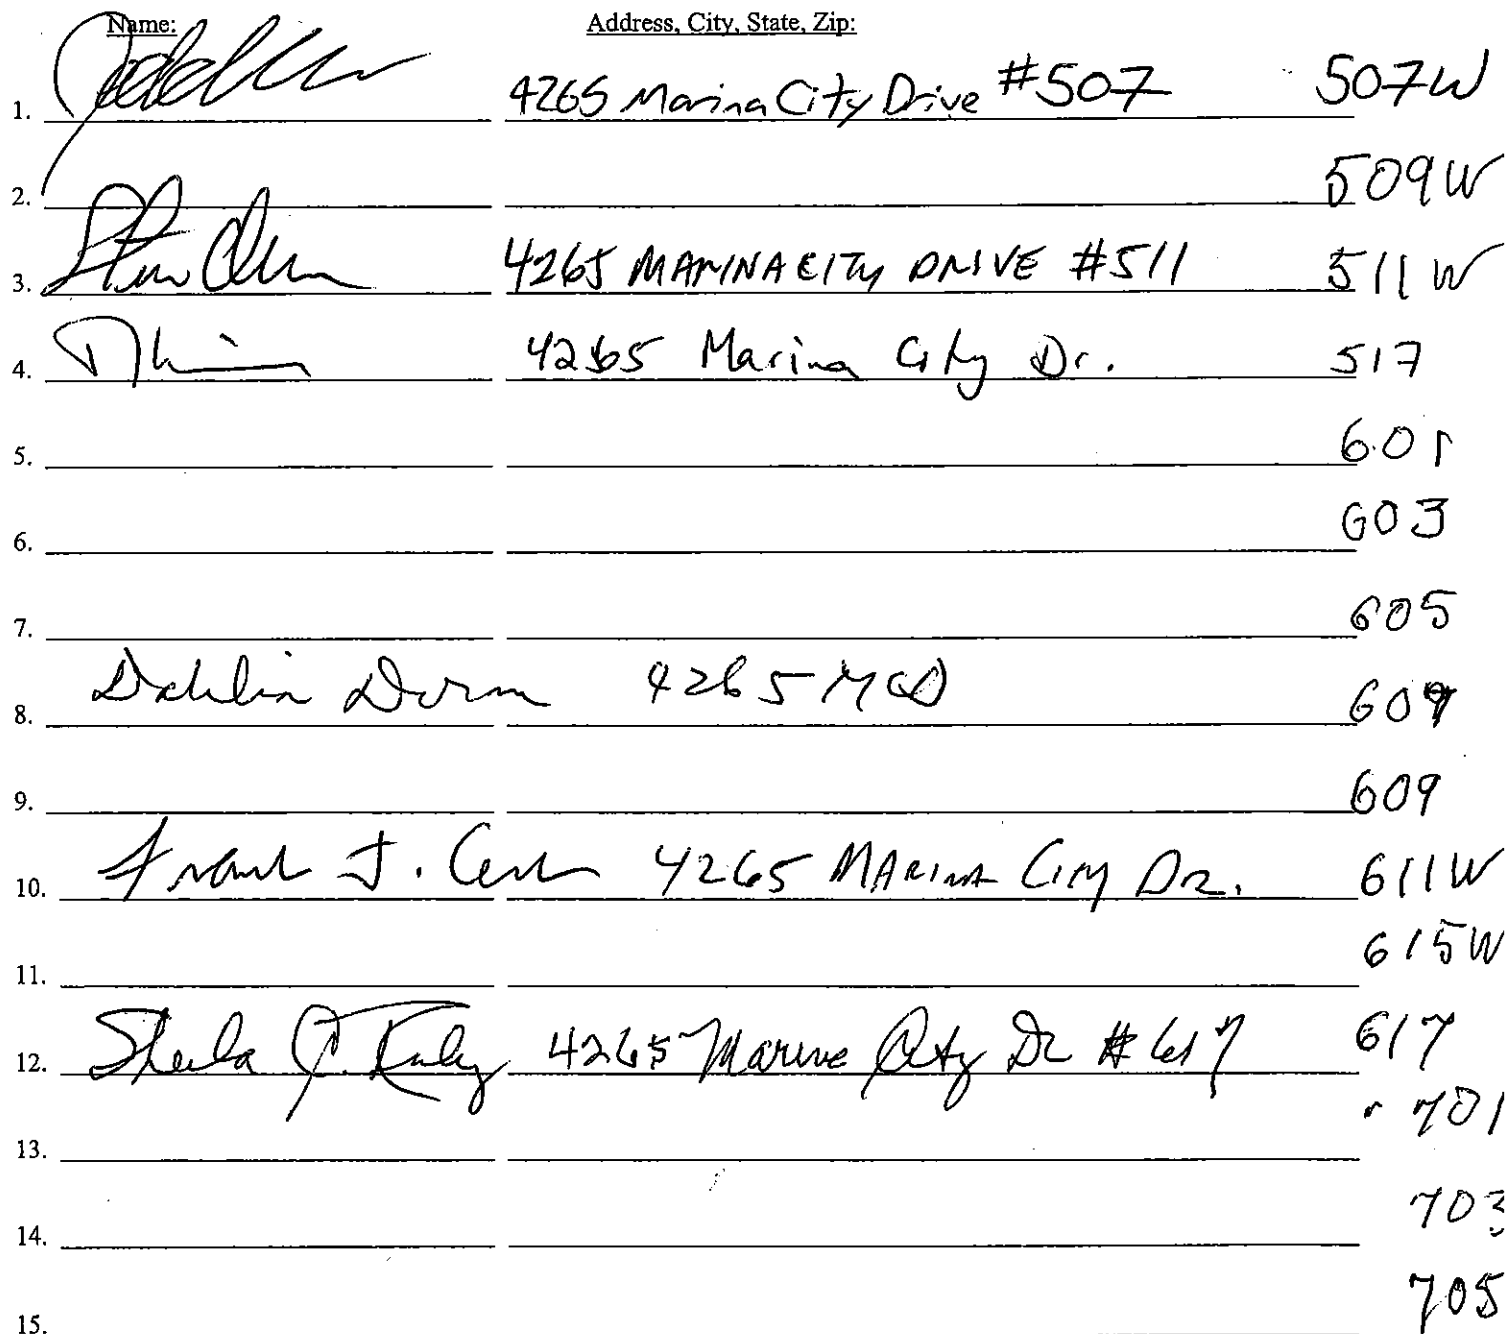 Name: Address, City, State, Zip:
1. 4265 Marina City Drive #507 507W
2. 509W
3. 4265 MARINA CITY DRIVE #511 511W
4. 4265 Marina City Dr. 517
5. 601
6. 603
7. 605
8. 4265 MCD
9. 609
10. Frank J. 4265 MARINA CITY DR. 611W
11. 615W
12. Sheila 4265 Marina City Dr #617 617
13. 701
14. 703
15. 705